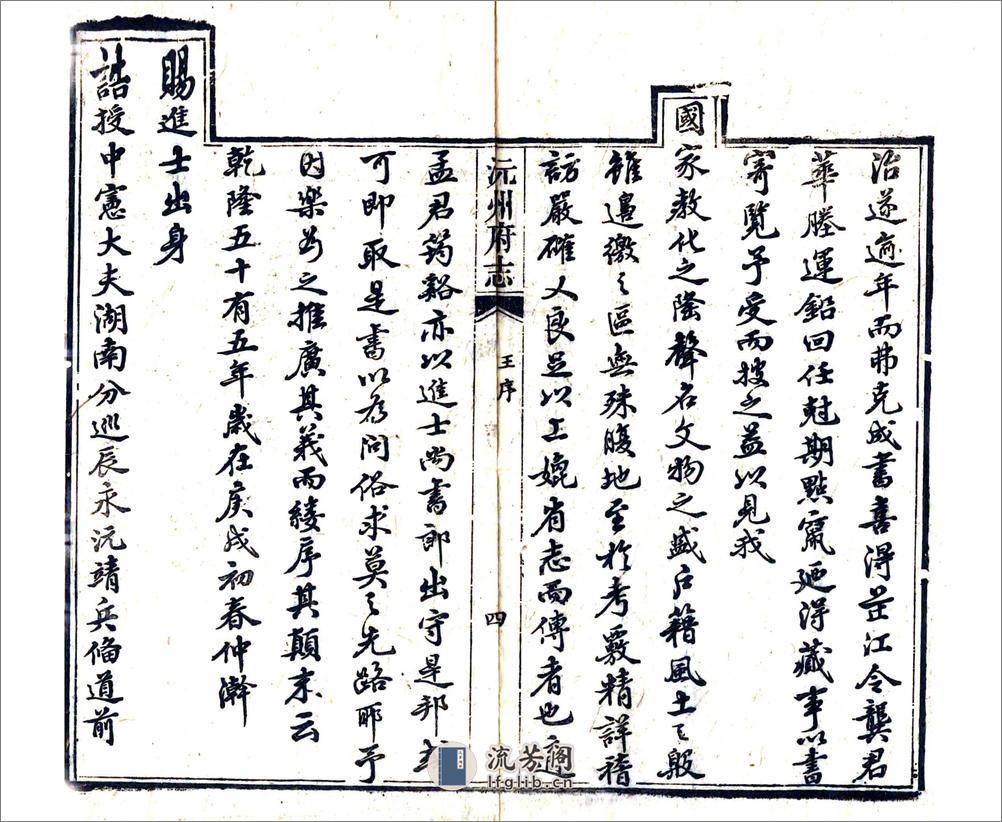 治遂逾年而弗克成書喜得芷江令龔君
華塍運鉛回任尅期點竄廼得蕆事以書
寄覽予受而披之益以見我
國家教化之隆聲名文物之盛戶籍風土之殷
雖邊徼之區無殊腹地至於考覈精詳稽
訪嚴確人良足以上媲省志而傳者也適
沅州府志
王序
四
孟君筠谿亦以進士尚書郎出守是邦
可即取是書以為問俗求莫之先路耶予
因樂為之推廣其義而綾序其顛末云
乾隆五十有五年歲在庚戌初春仲澣
賜進士出身
誥授中憲大夫湖南分巡辰永沅靖兵備道前
流芳閣
lfglib.cn